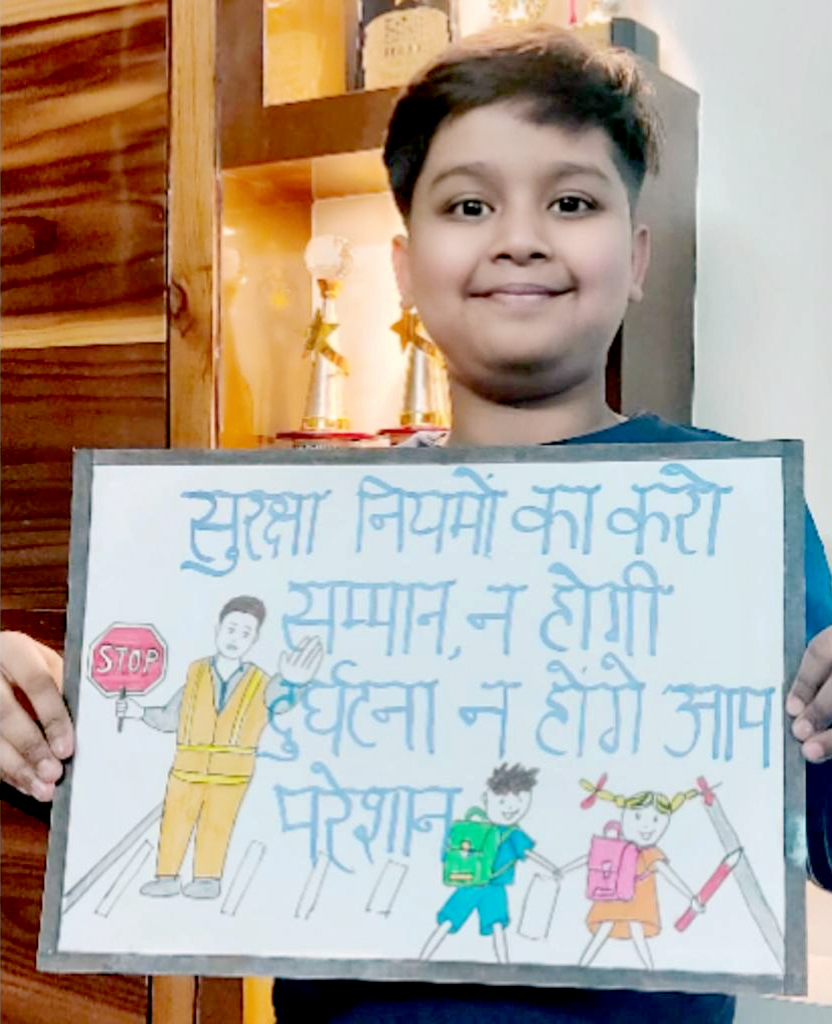 सुरक्षा नियमों का करो
सम्मान, न होगी
STOP
दुर्घटना न होंगे आप
परेशान